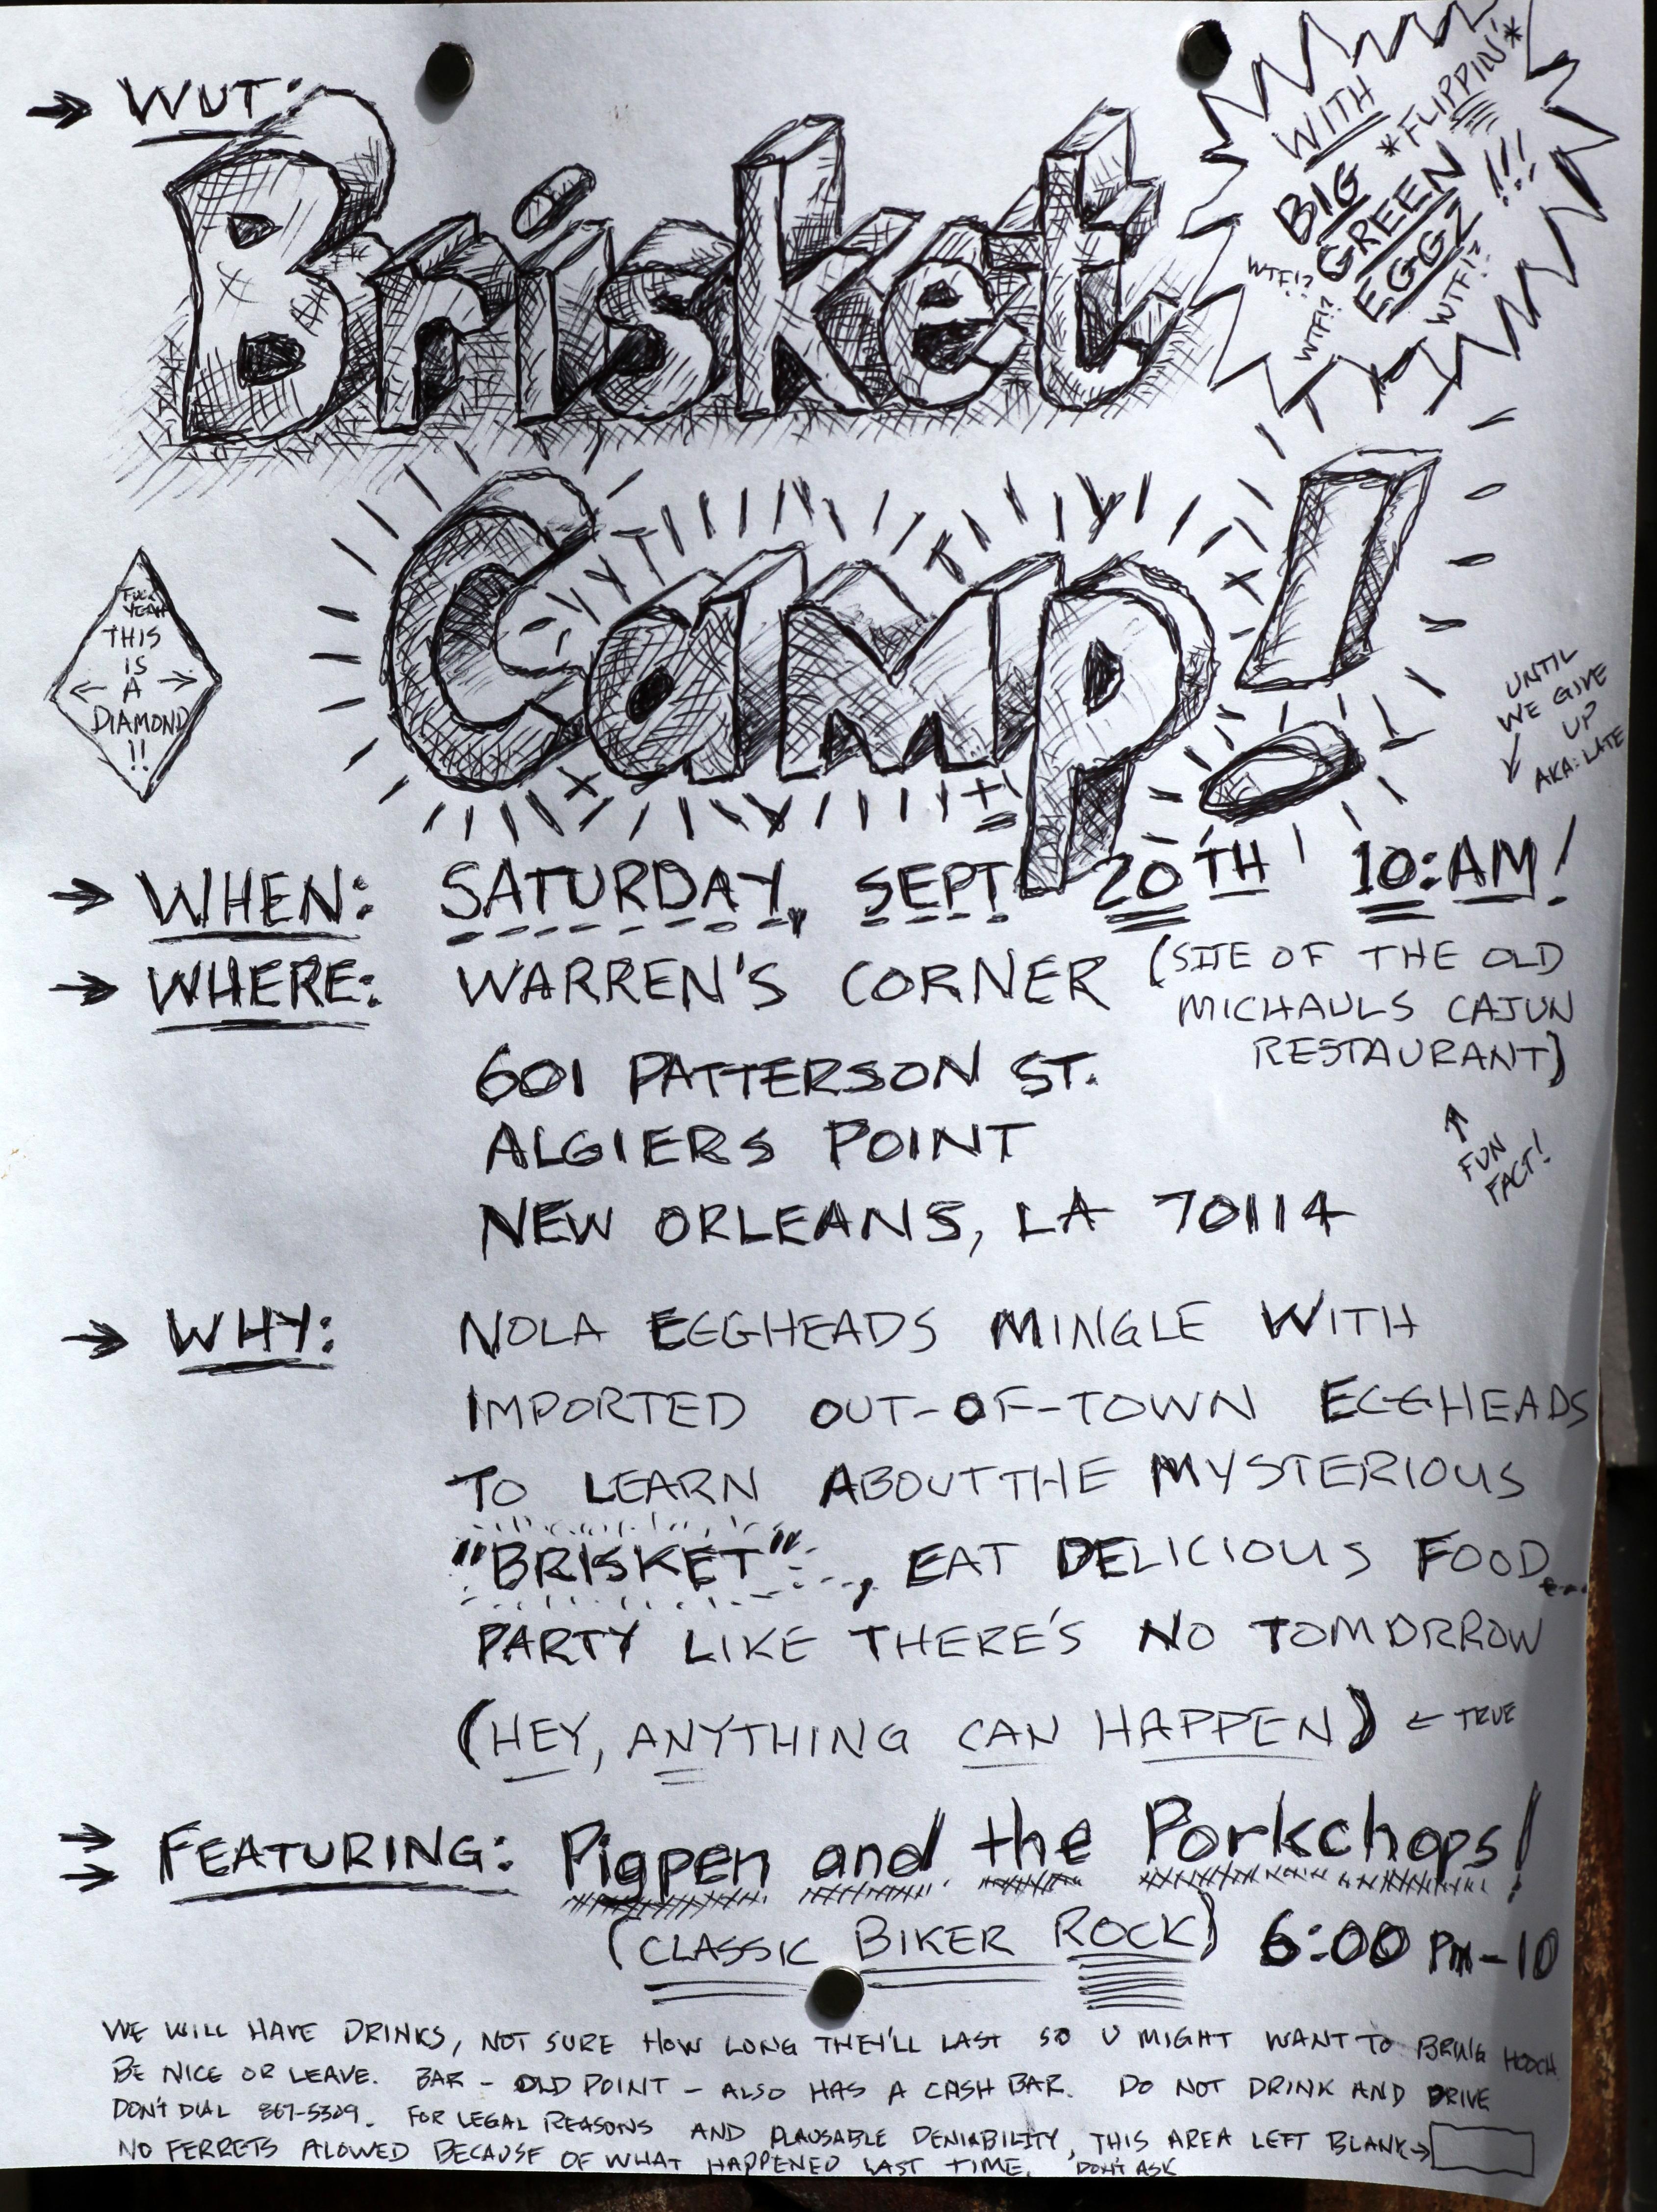 WUT:
Brisket
Camp!
WITH
*FLIPPIN'*
BIG
GREEN
EGGZ !!!
WTF!?
WTF!?
WTF!?
FUCK
YEAH
THIS
IS
← A →
DIAMOND
!!
UNTIL
WE GIVE
UP
AKA: LATE
→ WHEN: SATURDAY, SEPT 20TH 10:AM!
→ WHERE: WARREN'S CORNER (SITE OF THE OLD
MICHAULS CAJUN
RESTAURANT)
601 PATTERSON ST.
ALGIERS POINT
NEW ORLEANS, LA 70114
FUN
FACT!
→ WHY: NOLA EGGHEADS MINGLE WITH
IMPORTED OUT-OF-TOWN EGGHEADS
TO LEARN ABOUT THE MYSTERIOUS
"BRISKET", EAT DELICIOUS FOOD...
PARTY LIKE THERE'S NO TOMORROW
(HEY, ANYTHING CAN HAPPEN) ← TRUE
FEATURING: Pigpen and the Porkchops!
(CLASSIC BIKER ROCK) 6:00 PM-10
WE WILL HAVE DRINKS, NOT SURE HOW LONG THEY'LL LAST SO U MIGHT WANT TO BRING HOOCH
BE NICE OR LEAVE. BAR - OLD POINT - ALSO HAS A CASH BAR. DO NOT DRINK AND DRIVE
DON'T DIAL 867-5309. FOR LEGAL REASONS AND PLAUSABLE DENIABILITY, THIS AREA LEFT BLANK→
NO FERRETS ALOWED BECAUSE OF WHAT HAPPENED LAST TIME. DON'T ASK